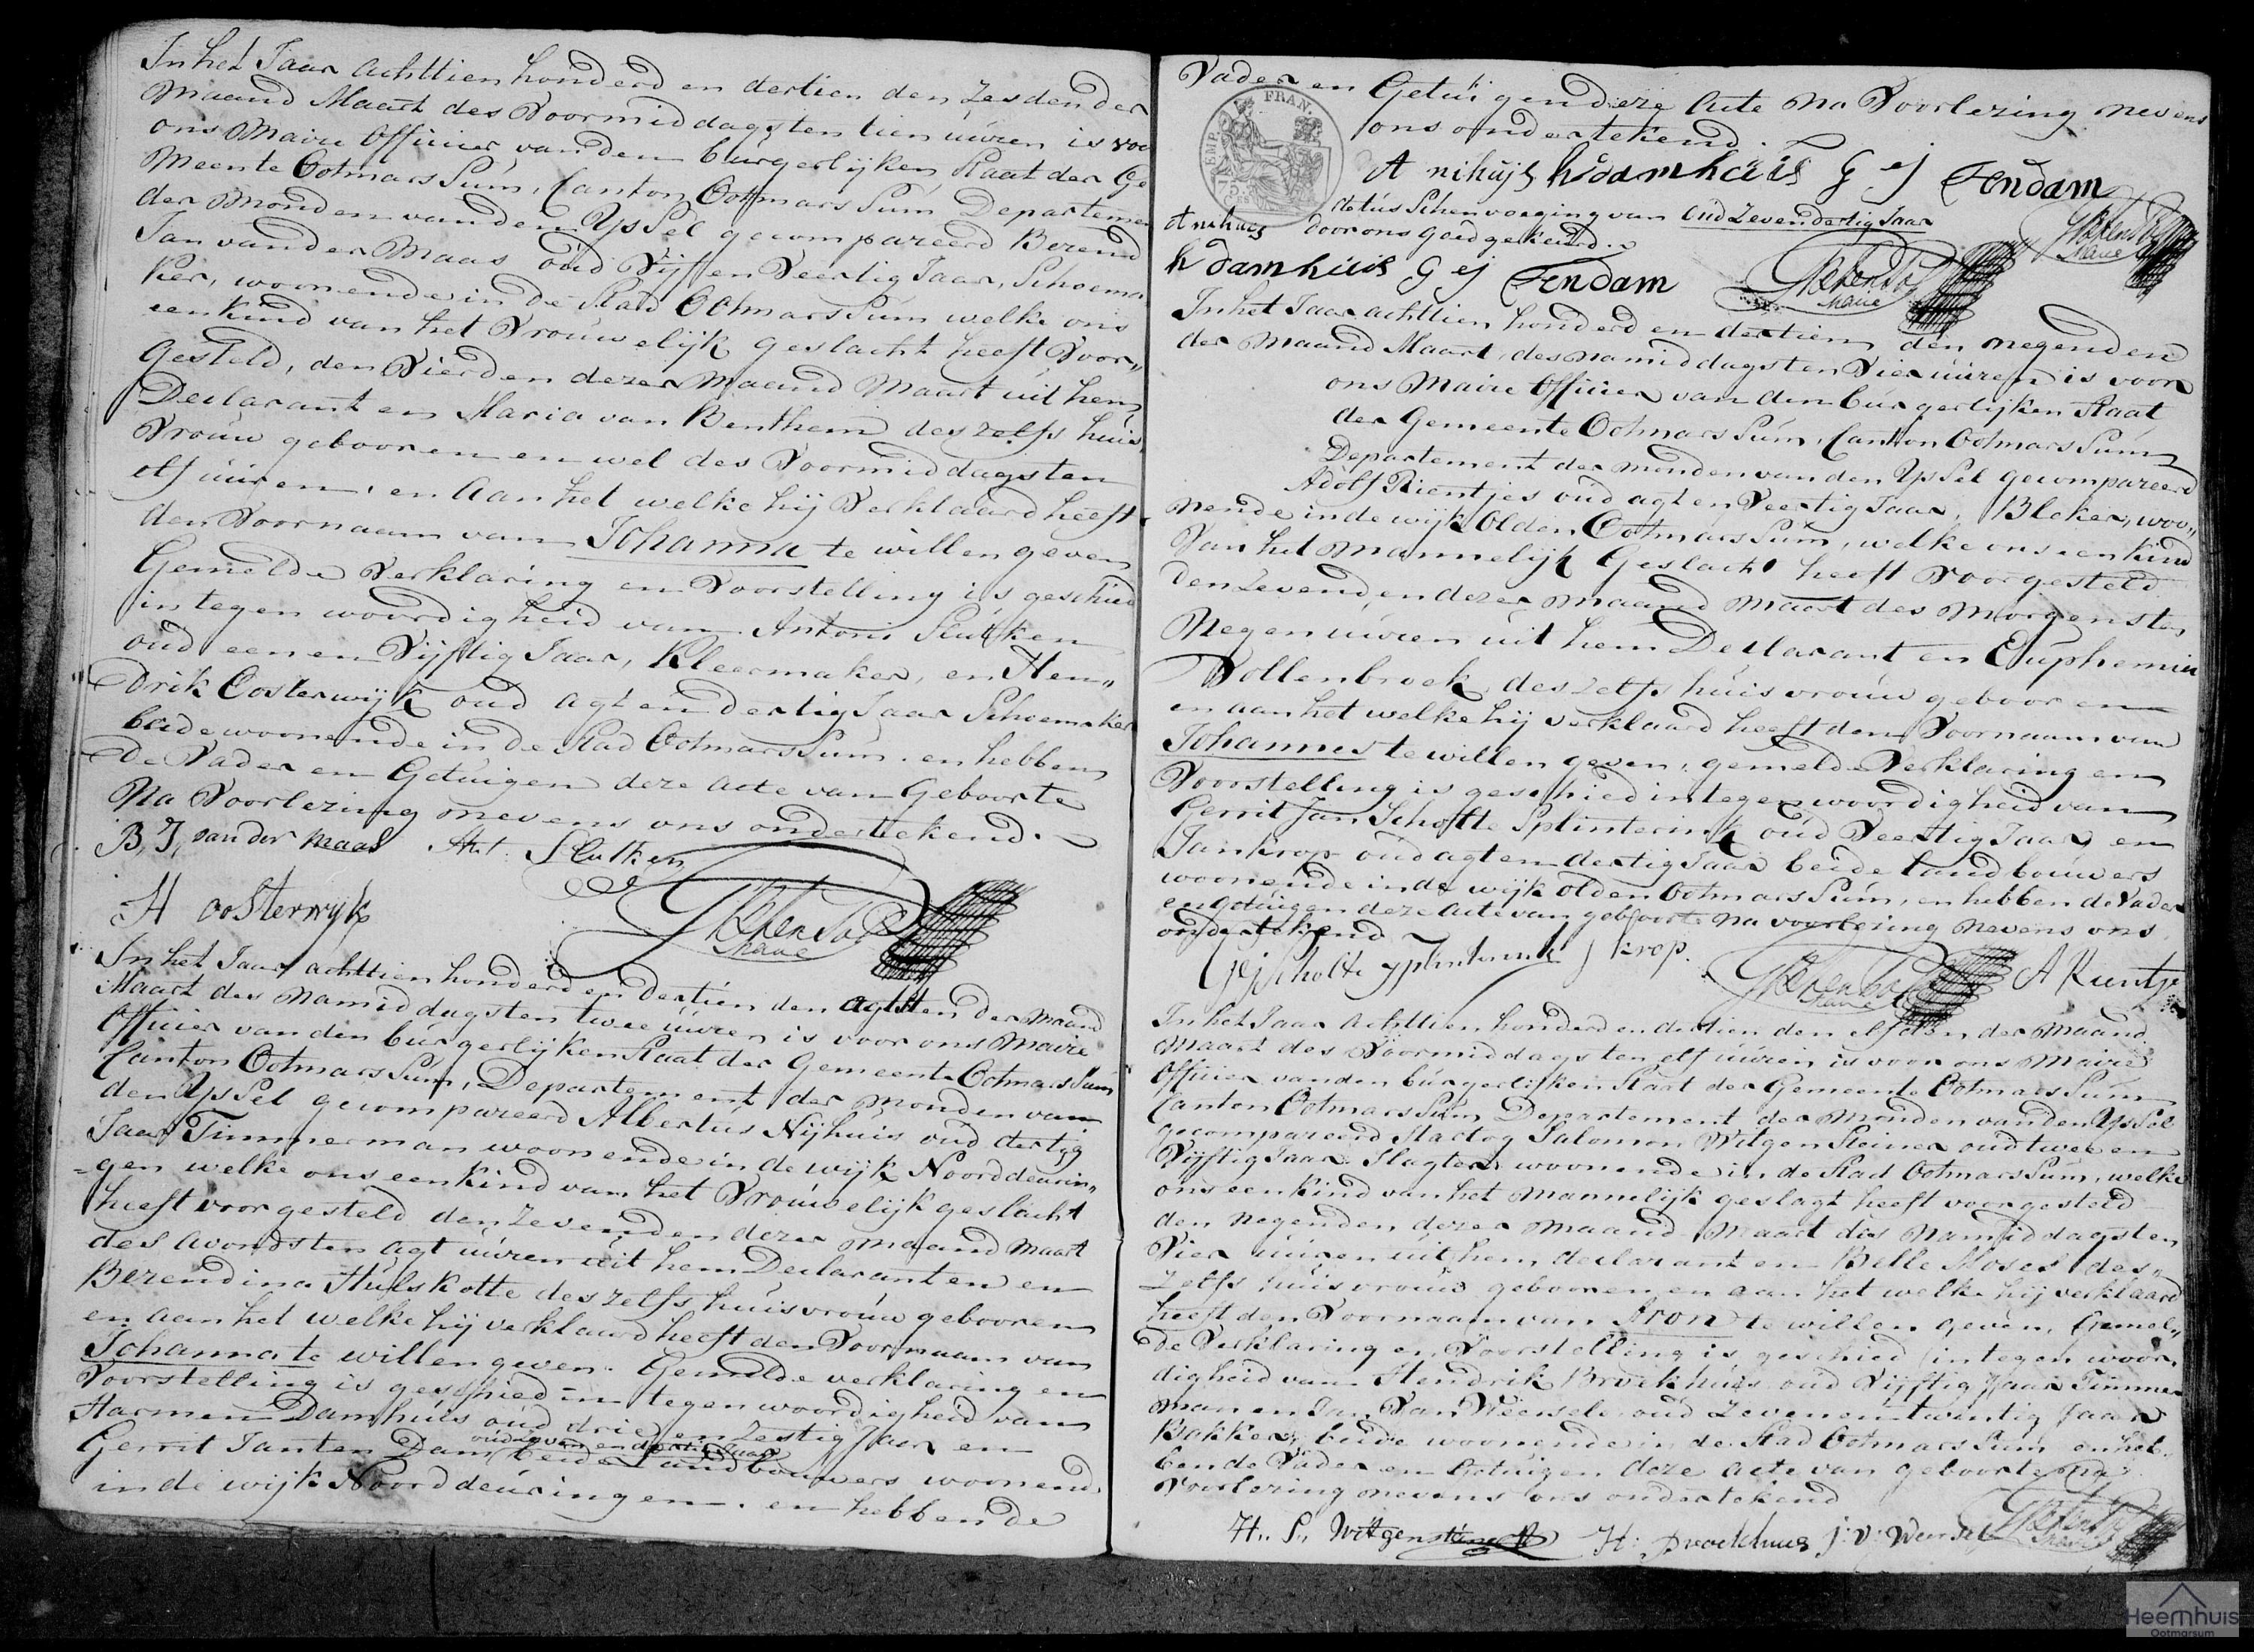 In het Jaar achttien honderd en dertien den Zesden der
Maand Maart des Voormiddags ten tien uúren is voor
ons Maire Officier van den búrgerlijken Staat der Ge
meente Ootmarssúm, Canton Ootmarssúm Departemen
der Monden van den Yssel gecompareerd Berend
Jan van der Maas oúd Vijf en Veertig Jaar, Schoema
ker, woonende in de Stad Ootmarssúm welke ons
een kind van het Vroúwelijk geslacht heeft Voor„
gesteld, den Vierden dezer Maand Maart uit hem
Declarant en Maria van Benthem deszelfs huis
Vroúw gebooren en wel des Voormiddags ten
elf uúren, en aan het welke hij Verklaard heeft
den Voornaam van Johanna te willen geven
Gemelde Verklaring en Voorstelling is geschied
in tegenwoordigheid van Antoni Slutken
oud een en Vijftig Jaar, Kleermaker, en Hen„
drik Oosterwijk oud agt en dertig Jaar Schoemaker
beide woonende in de Stad Ootmarssúm. en hebben
de Vader en Getúigen deze acte van Geboorte
Na Voorlezing nevens ons ondertekend.
B, J, van der maas Ant: Slutken
H oosterwyk
Maire
In het Jaar achttien honderd en dertien den agtsten der maand
Maart des Namiddags ten twee úúren is voor ons Maire
Officier van den búrgerlijken Staat der Gemeente Ootmarssúm
Canton Ootmarssúm, Departement der monden van
den Yssel gecompareerd Albertús Nijhúis oúd dertyg
Jaar Timmerman woonende in de wijk Noorddeurin„
=gen welke ons een kind van het Vroúwelijk geslacht
heeft voorgesteld den Zevenden dezer maand maart
des avonds ten agt uúren uit hem Declarant en en
Berendina Húlskotte deszelfs húisvroúw gebooren
en aan het welke hij verklaard heeft den Voornaam van
Johanna te willen geven. Gemelde verklaring en
Voorstelling is geschied in tegenwoordigheid van
Harmen Damhúis oúd drie en Zestig Jaar en
oúd zeven en dertig Jaar
Gerrit Jan ten Dam beide Landboúwers woonend
in de wijk Noorddeúringen. en hebben de
Vader en Getuigen deze Acte Na Voorlezing nevens
ons ondertekend.
EMP. FRAN.
75 Ces
A nihújs h damhúis G ej Tendam
Maire
de tússchenvoeging van oúd Zevendertig Jaar
door ons goedgekeúrd.
A nihuis
h damhúis G ej Tendam
Maire
In het Jaar achttien honderd en dertien, den negenden
der Maand Maart, des namiddags ten Vier uúren is voor
ons Maire Officier van den búrgerlijken Staat
der Gemeente Ootmarssúm, Canton Ootmarssúm
Departement der monden van den Yssel gecompareerd
Adolf Rientjes oúd agt en Veertig Jaar, Bleker, woo„
nende in de wijk Olden Ootmarssúm, welke ons een kind
Van het Mannelijk Geslacht heeft Voorgesteld
den Zevenden dezer maand maart des morgens ten
Negen uúren uit hem Declarant en Euphemia
Vollenbroek, deszelfs húisvroúw gebooren
en aan het welke hij verklaard heeft den Voornaam van
Johannes te willen geven, gemelde Verklaring en
Voorstelling is geschied in tegenwoordigheid van
Gerrit Jan Scholte Splinterink oúd Veertig Jaar, en
Jan Krop oúd agt en dertig Jaar beide landboúwers
woonende in de wijk olden Ootmarssúm, en hebben de Vader
en getúigen deze acte van geboorte na voorlezing nevens ons
ondertekend
Gej Scholte J krop. A Rientje
Maire
In het Jaar achttien honderd en dertien den elfden der maand
Maart des Voormiddags ten elf uúren is voor ons Maire
Officier van den búrgerlijken Staat der Gemeente Ootmarssúm
Canton Ootmarssúm Departement der Monden van den Yssel
gecompareerd Hartog Salomon Witgensteiner oud twee en
Vijftig Jaar Slagter, woonende in de Stad Ootmarssúm, welke
ons een kind van het mannelijk geslagt heeft voorgesteld
den negenden dezer maand Maart des Namiddags ten
Vier úúren úit hem declarant en Belle Moses des„
zelfs húisvroúw gebooren en aan het welke hij verklaard
heeft den Voornaam van Aron te willen geven, Gemel„
de Verklaring en Voorstelling is geschied in tegenwoor„
digheid van Hendrik Broekhúis oúd Vijftig Jaar Timmer
man en Jan Van Weersele oud Zeven en twintig Jaar
Bakker, beide woonende in de Stad Ootmarssúm en heb„
ben de Vader en Getúigen deze acte van geboorte na
Voorlezing nevens ons ondertekend
H. S. Witgensteiner H: Broekhuis J: V: Weersel
Maire
Heemhuis
Ootmarsum